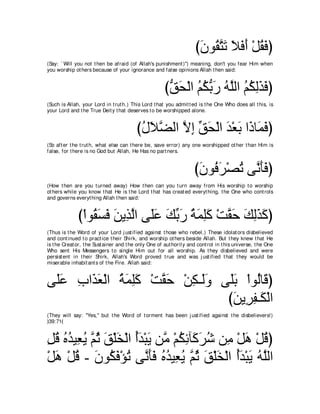 (فَقُلْ أَفَلاَ تَتَّقُونَ)
(Say: ¨Will you not then be afraid (of Allah's punishment)¨) meaning, don't you fear Him when you worship others because of your ignorance and false opinions Allah then said:
(فَذَلِكُمُ اللَّهُ رَبُّكُمُ الْحَقُّ)
(Such is Allah, your Lord in truth.) This Lord that you admitted is the One Who does all this, is your Lord and the True Deity that deserves to be worshipped alone.
(فَمَاذَا بَعْدَ الْحَقِّ إِلاَّ الضَّلاَلُ)
(So after the truth, what else can there be, save error) any one worshipped other than Him is false, for there is no God but Allah, He Has no partners.
(فَأَنَّى تُصْرَفُونَ)
(How then are you turned away) How then can you turn away from His worship to worship others while you know that He is the Lord that has created everything, the One who controls and governs everything Allah then said:
(كَذَلِكَ حَقَّتْ كَلِمَةُ رَبِّكَ عَلَى الَّذِينَ فَسَقُواْ)
(Thus is the Word of your Lord justified against those who rebel.) These idolators disbelieved and continued to practice their Shirk, and worshipping others beside Allah. But they knew that He is the Creator, the Sustainer and the only One of authority and control in this universe, the One Who sent His Messengers to single Him out for all worship. As they disbelieved and were persistent in their Shirk, Allah's Word proved true and was justified that they would be miserable inhabitants of the Fire. Allah said:
(قَالُواْ بَلَى وَلَـكِنْ حَقَّتْ كَلِمَةُ الْعَذَابِ عَلَى الْكَـفِرِينَ)
(They will say: "Yes," but the Word of torment has been justified against the disbelievers!) (39:71)
قُلْ هَلْ مِن شُرَكَآئِكُمْ مَّن يَبْدَأُ الْخَلْقَ ثُمَّ يُعِيدُهُ قُلِ اللَّهُ يَبْدَأُ الْخَلْقَ ثُمَّ يُعِيدُهُ فَأَنَّى تُؤْفَكُونَ - قُلْ هَلْ